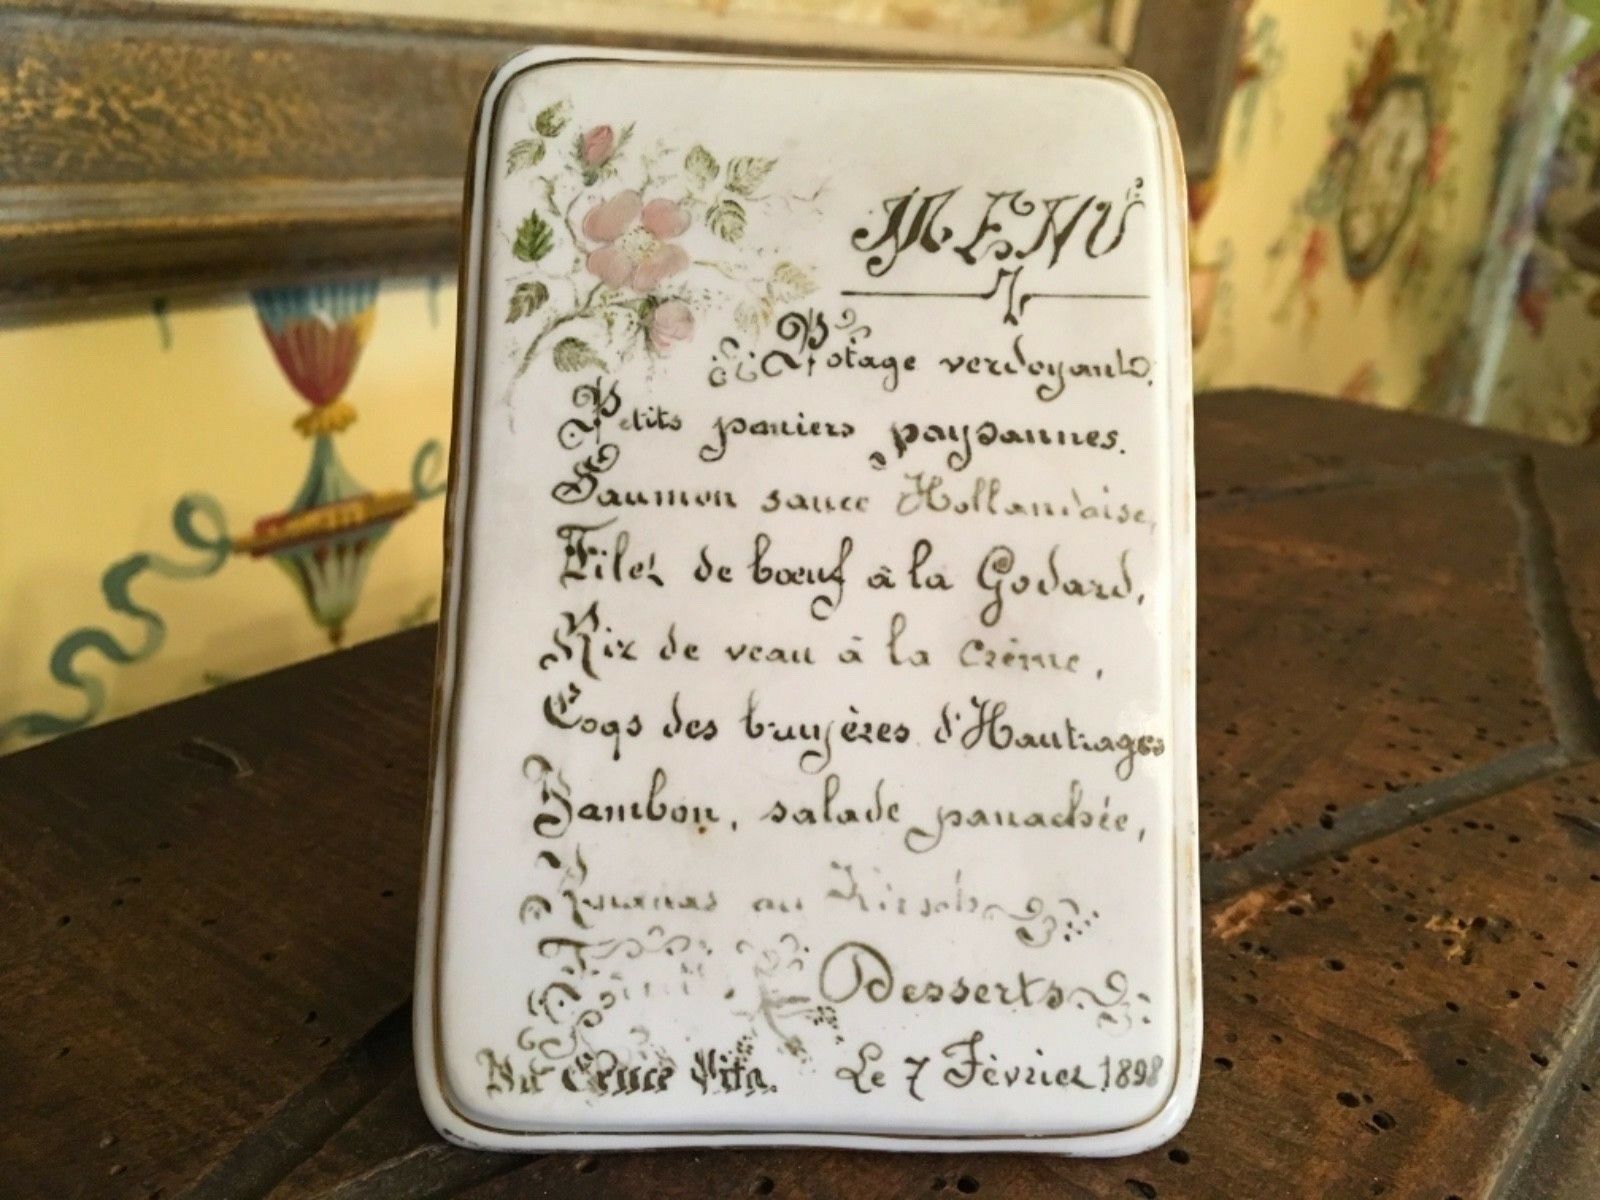 MENU
Potage verdoyant,
Petits paniers paysannes.
Saumon sauce Hollandaise,
Filet de bœuf à la Godard,
Riz de veau à la crème,
Coqs des bruyères d'Hautrages
Jambon, salade panachée,
Ananas au Kirsch
Desserts
In Cruce Vita. Le 7 Février 1898